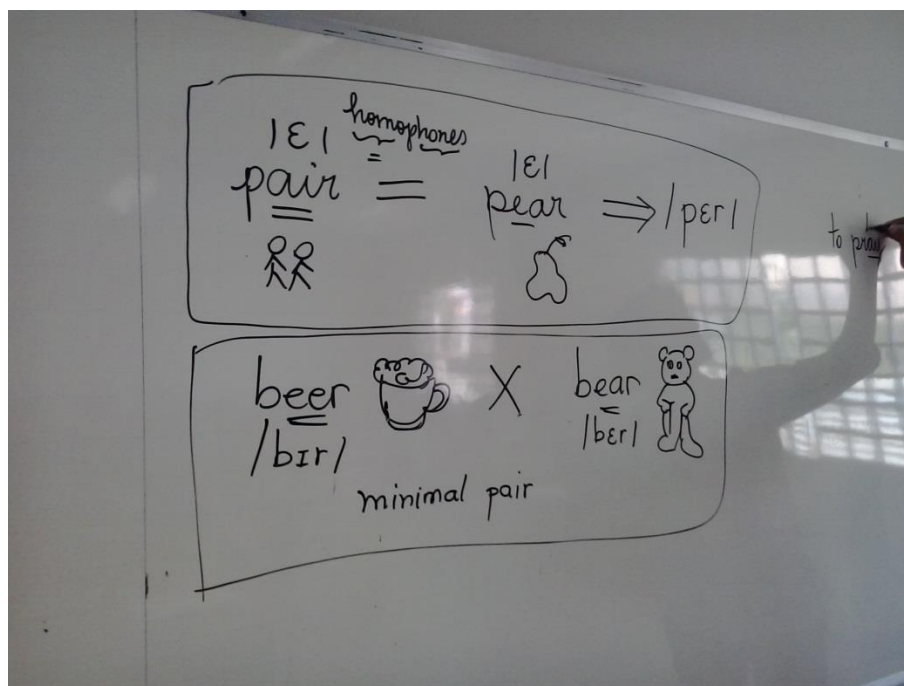 homophones
=
/ɛ/ /ɛ/
pair = pear ⇒ /pɛr/
to pray
beer X bear
/bɪr/ /bɛr/
minimal pair